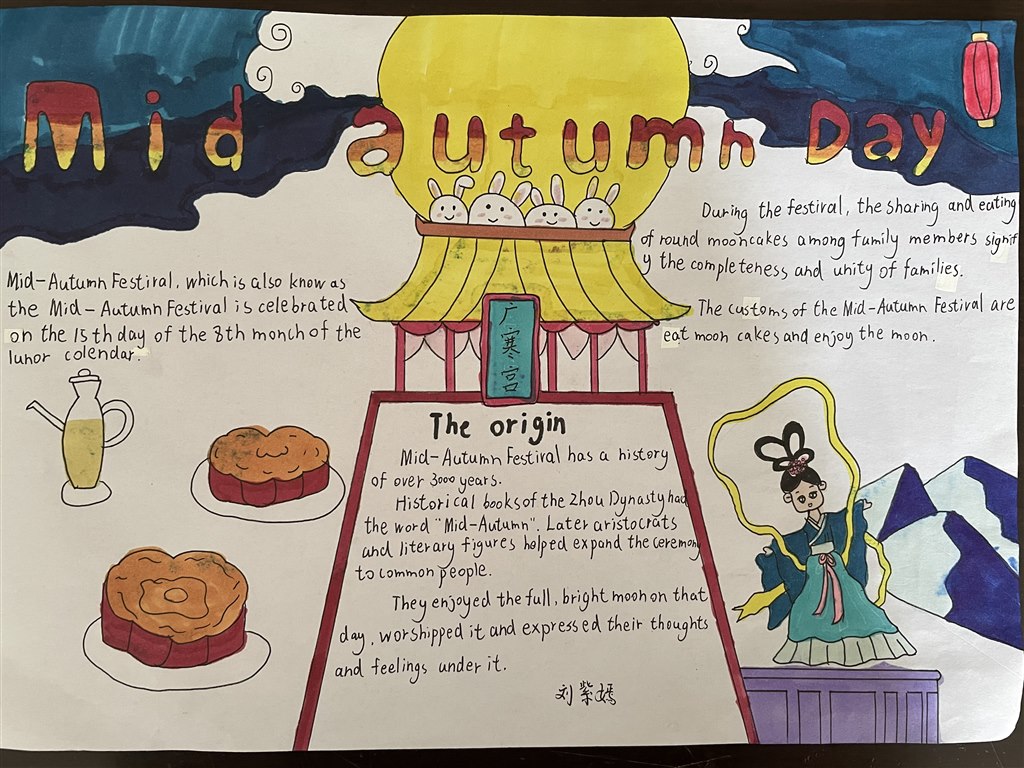 Mid autumn Day
Mid-Autumn Festiral, which is also know as
the Mid-Autumn Festival is celebrated
on the 15th day of the 8th monch of the
lunor colendar.
During the festival, the sharing and eating
of round mooncakes among family members signif
y the completeness and unity of families.
The customs of the Mid-Autumn Festival are
eat moon cakes and enjoy the moon.
广
寒
宫
The origin
Mid-Autumn Festival has a history
of over 3000 years.
Historical books of the Zhou Dynasty had
the word "Mid-Autumn". Later aristocrats
and literary figures helped expand the ceremony
to common people.
They enjoyed the full, bright moon on that
day, worshipped it and expressed their thoughts
and feelings under it.
刘紫嫣